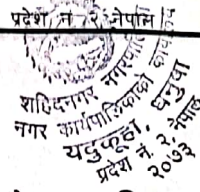 प्रदेश नं. २ नेपाल
शहिदनगर नगरपालि
नगर कार्यपालिकाको कार्य
यदुफूहा, धनुषा
प्रदेश नं. २, नेपाल
२०७३